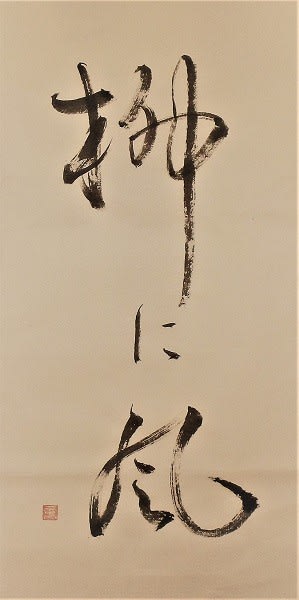 柳に風